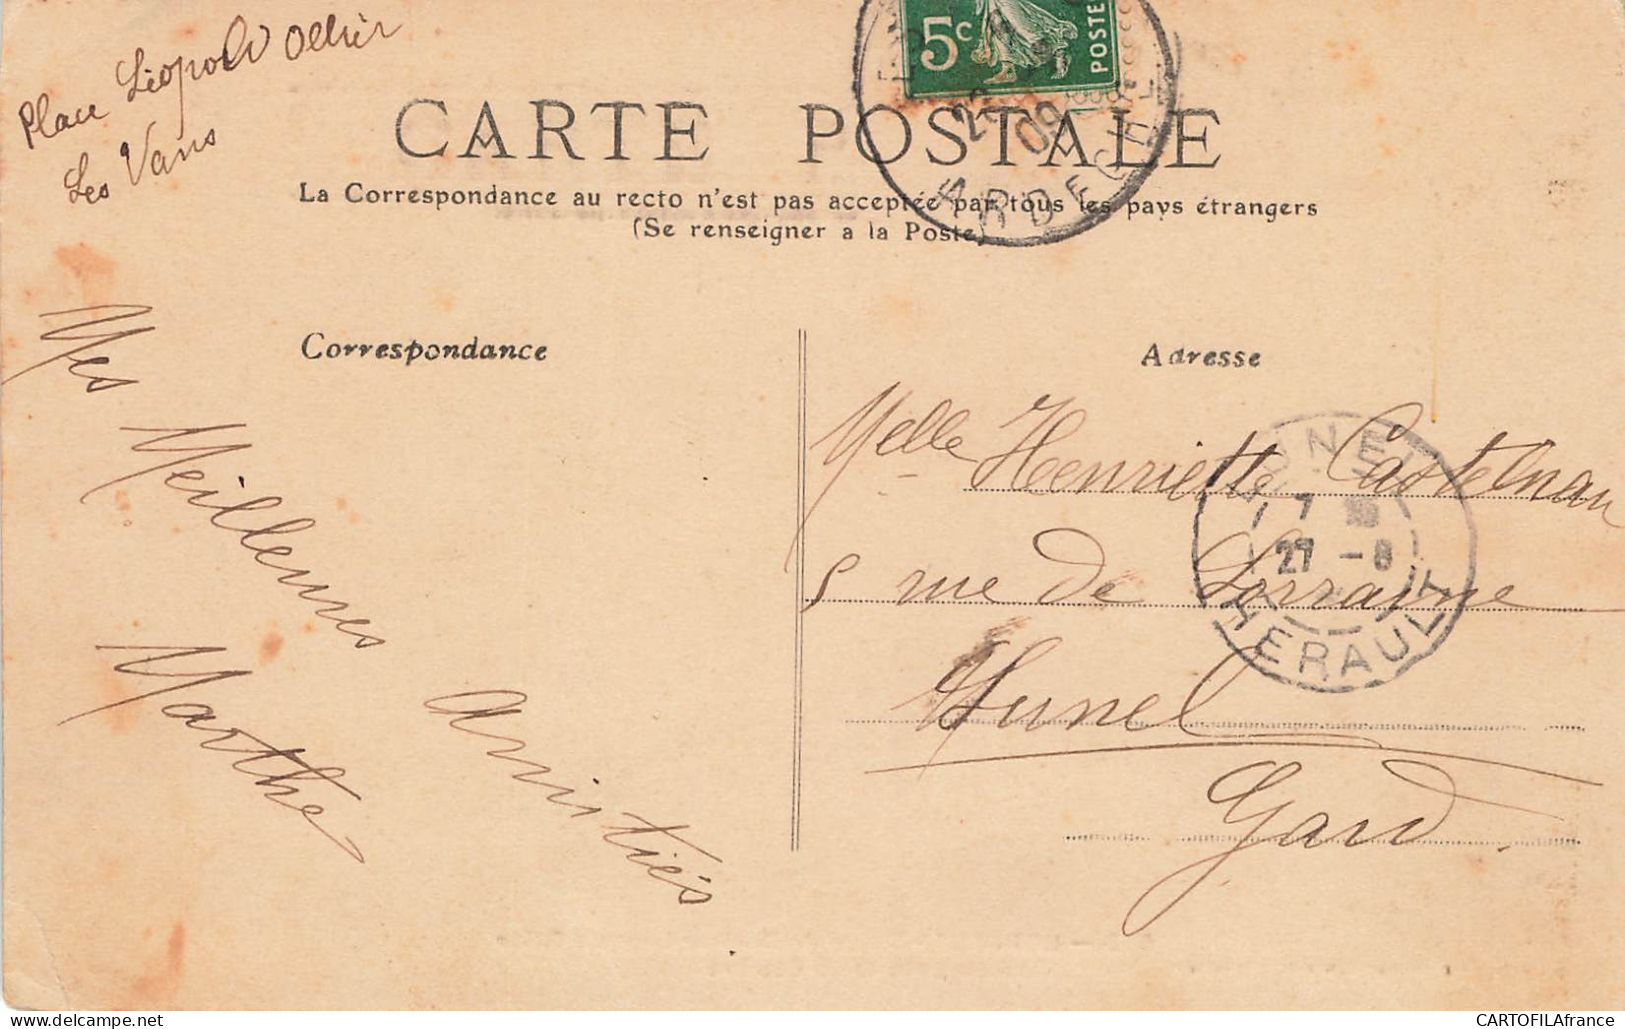 Place Léopold Ollier
Les Vans
5c
POSTE
CARTE POSTALE
ARDECHE
09
La Correspondance au recto n'est pas acceptée par tous les pays étrangers
(Se renseigner a la Poste)
Correspondance
Adresse
Mes Meilleures Amitiés
Marthe
Melle Henriette Castelnau
5 rue de Lorraine
Lunel
Gard
LUNEL
27 -8
HERAULT
CARTOFILAfrance